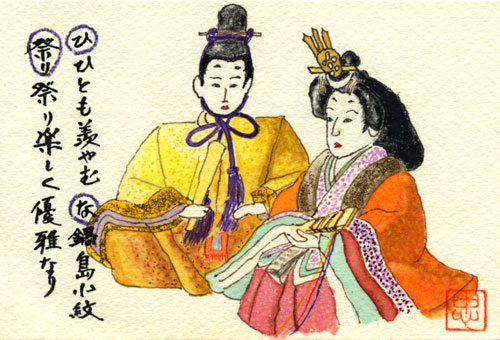 ひひとも羨やむな鍋島小紋
祭り祭り楽しく優雅なり